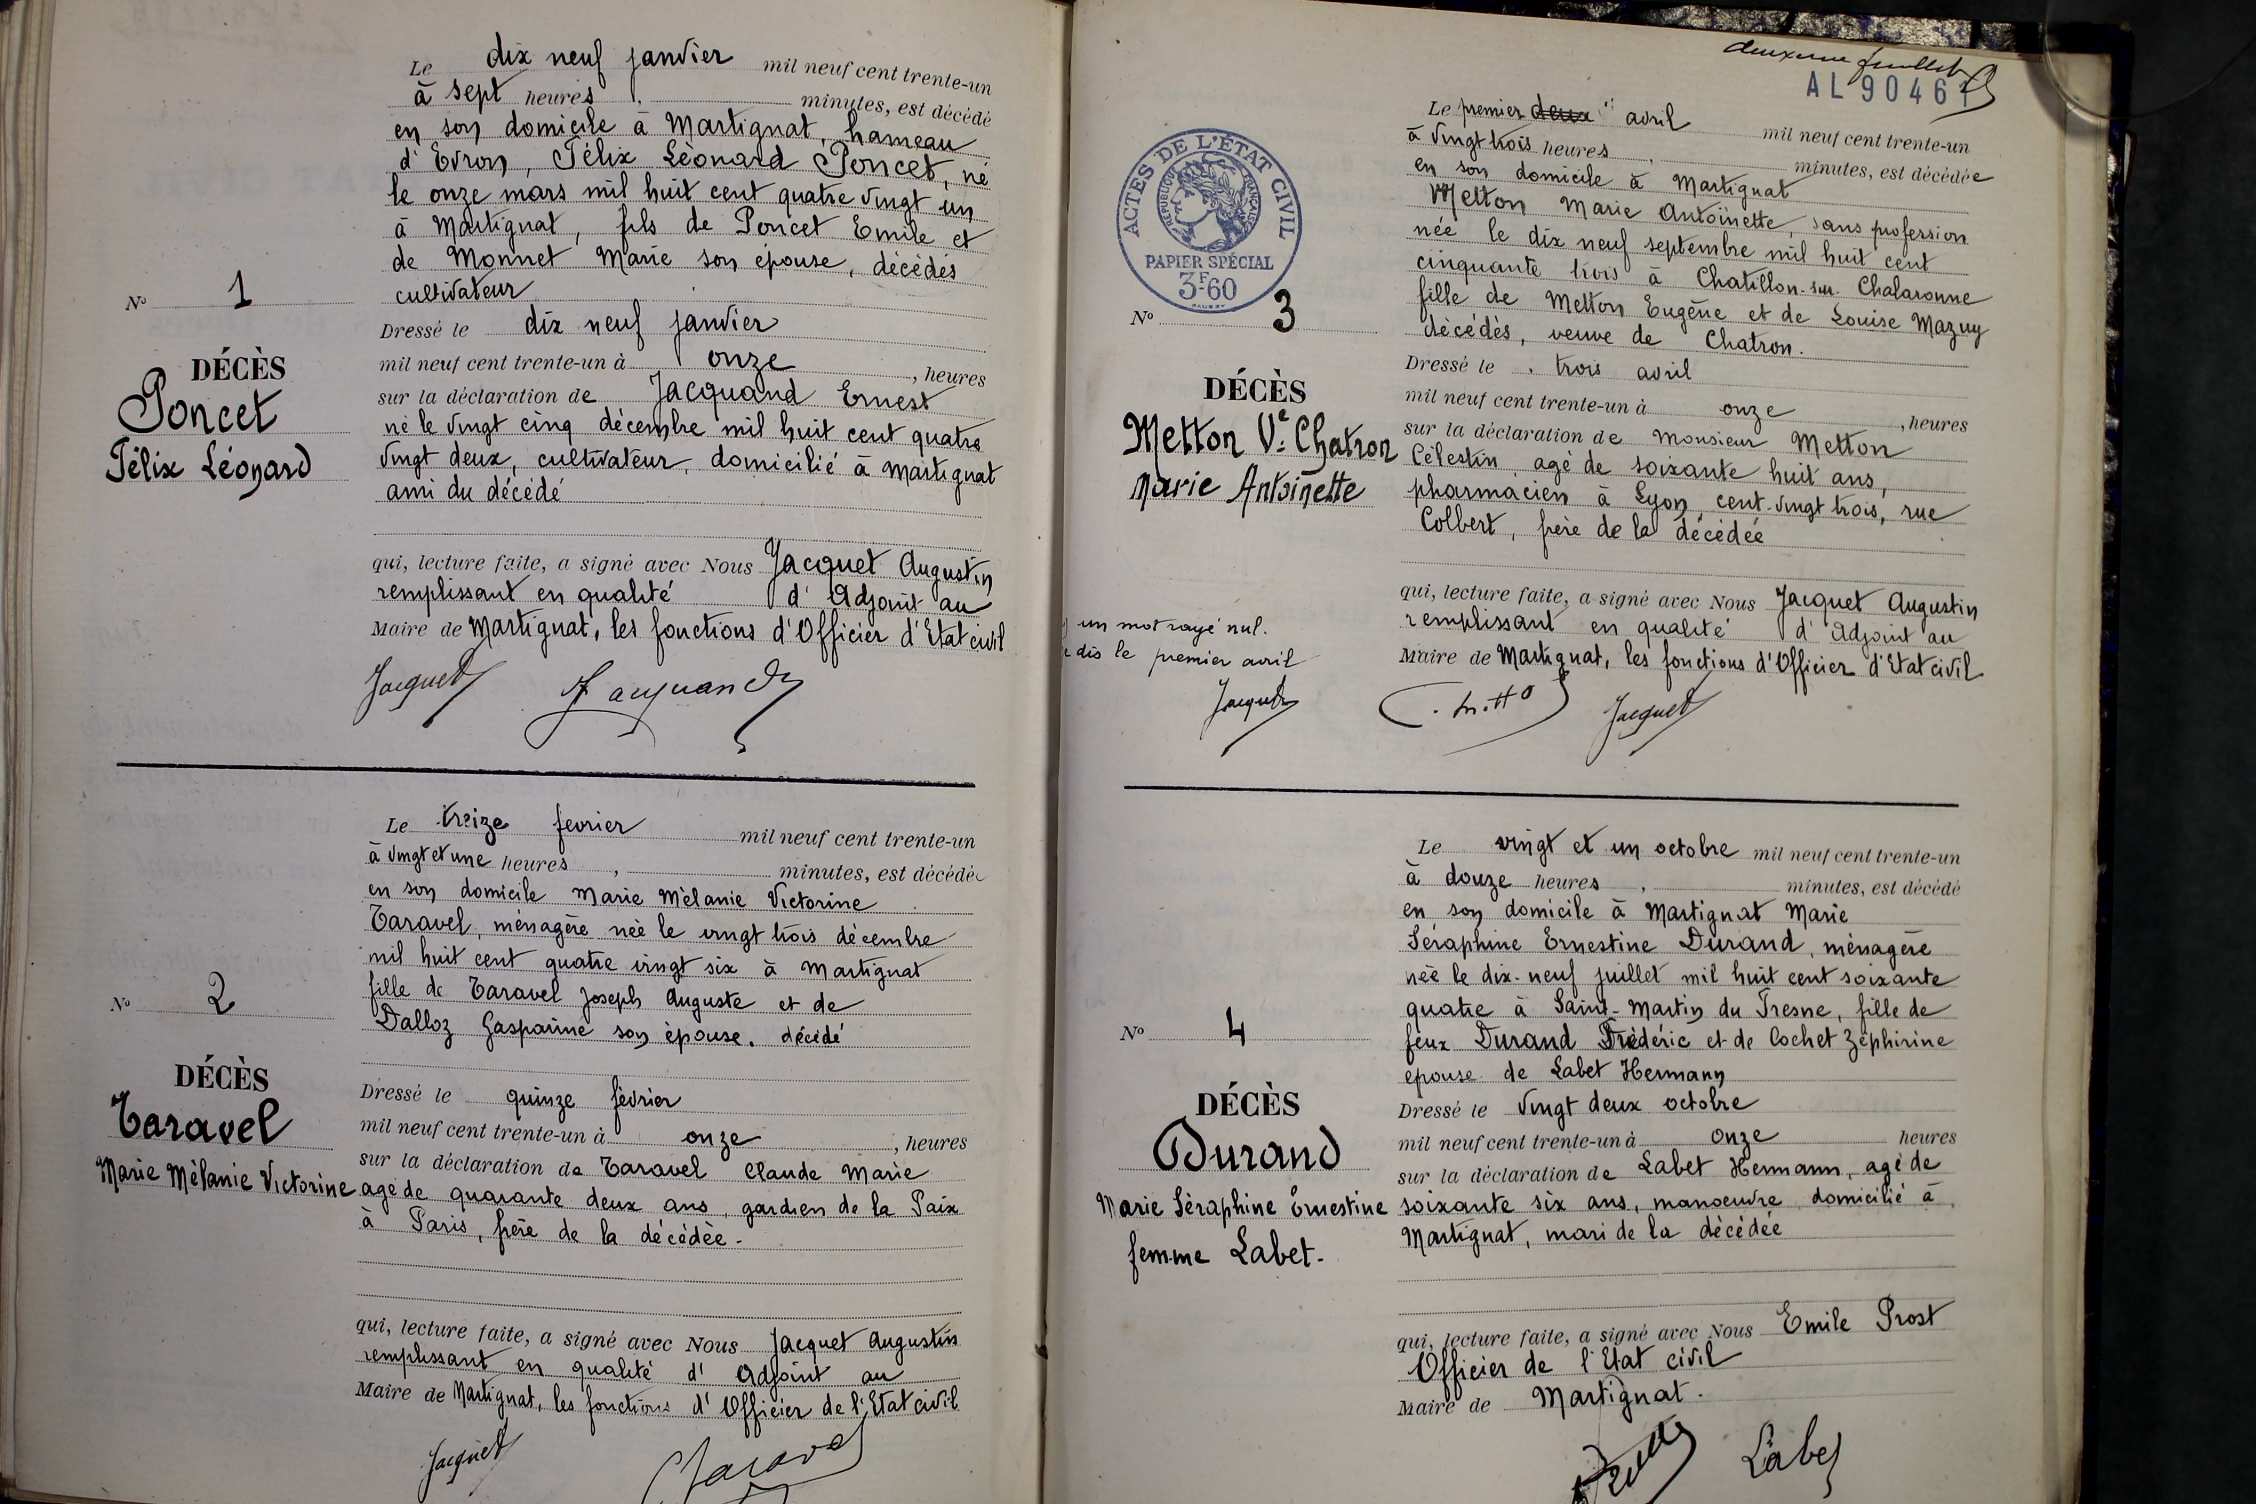 Le dix neuf janvier mil neuf cent trente-un
à sept heures, minutes, est décédé
en son domicile à Martignat, hameau
d'Evron, Félix Léonard Poncet, né
le onze mars mil huit cent quatre vingt un
à Martignat, fils de Poncet Emile et
de Monnet Marie son épouse, décédés
cultivateur
N° 1
Dressé le dix neuf janvier
mil neuf cent trente-un à onze, heures
DÉCÈS
Poncet
Félix Léonard
sur la déclaration de Jacquand Ernest
né le vingt cinq décembre mil huit cent quatre
vingt deux, cultivateur, domicilié à Martignat
ami du décédé
qui, lecture faite, a signé avec Nous Jacquet Augustin
remplissant en qualité d'Adjoint au
Maire de Martignat, les fonctions d'Officier d'Etat civil
Jacquet Jacquand
Le treize fevrier mil neuf cent trente-un
à vingt et une heures, minutes, est décédée
en son domicile Marie Mélanie Victorine
Taravel, ménagère née le vingt trois décembre
mil huit cent quatre vingt six à Martignat
fille de Taravel Joseph Auguste et de
Dalloz Gasparine son épouse. décédé
N° 2
DÉCÈS
Taravel
Marie Mélanie Victorine
Dressé le quinze février
mil neuf cent trente-un à onze, heures
sur la déclaration de Taravel Claude Marie
agé de quarante deux ans, gardien de la Paix
à Paris, frère de la décédée.
qui, lecture faite, a signé avec Nous Jacquet Augustin
remplissant en qualité d'Adjoint au
Maire de Martignat, les fonctions d'Officier de l'Etat civil
Jacquet Taravel
deuxième feuillet
AL 90461
ACTES DE L'ÉTAT CIVIL
RÉPUBLIQUE FRANÇAISE
PAPIER SPÉCIAL
3F60
Le premier deux avril mil neuf cent trente-un
à vingt trois heures, minutes, est décédée
en son domicile à Martignat
Metton Marie Antoinette, sans profession
née le dix neuf septembre mil huit cent
cinquante trois à Chatillon-sur-Chalaronne
fille de Metton Eugène et de Louise Mazuy
décédés, veuve de Chatron.
N° 3
DÉCÈS
Metton Ve Chatron
Marie Antoinette
Dressé le trois avril
mil neuf cent trente-un à onze, heures
sur la déclaration de Monsieur Metton
Célestin, agé de soixante huit ans,
pharmacien à Lyon, cent-vingt trois, rue
Colbert, frère de la décédée
qui, lecture faite, a signé avec Nous Jacquet Augustin
remplissant en qualité d'Adjoint au
Maire de Martignat, les fonctions d'Officier d'Etat civil
un mot rayé nul.
dis le premier avril
Jacquet
Jacquet
Le vingt et un octobre mil neuf cent trente-un
à douze heures, minutes, est décédé
en son domicile à Martignat Marie
Séraphine Ernestine Durand, ménagère
née le dix-neuf juillet mil huit cent soixante
quatre à Saint-Martin du Fresne, fille de
feux Durand Frédéric et de Cochet Zéphirine
épouse de Labet Hermann
N° 4
DÉCÈS
Durand
Marie Séraphine Ernestine
femme Labet.
Dressé le vingt deux octobre
mil neuf cent trente-un à onze heures
sur la déclaration de Labet Hermann, agé de
soixante six ans, manoeuvre domicilié à
Martignat, mari de la décédée
qui, lecture faite, a signé avec Nous Emile Prost
Officier de l'Etat civil
Maire de Martignat.
Labet